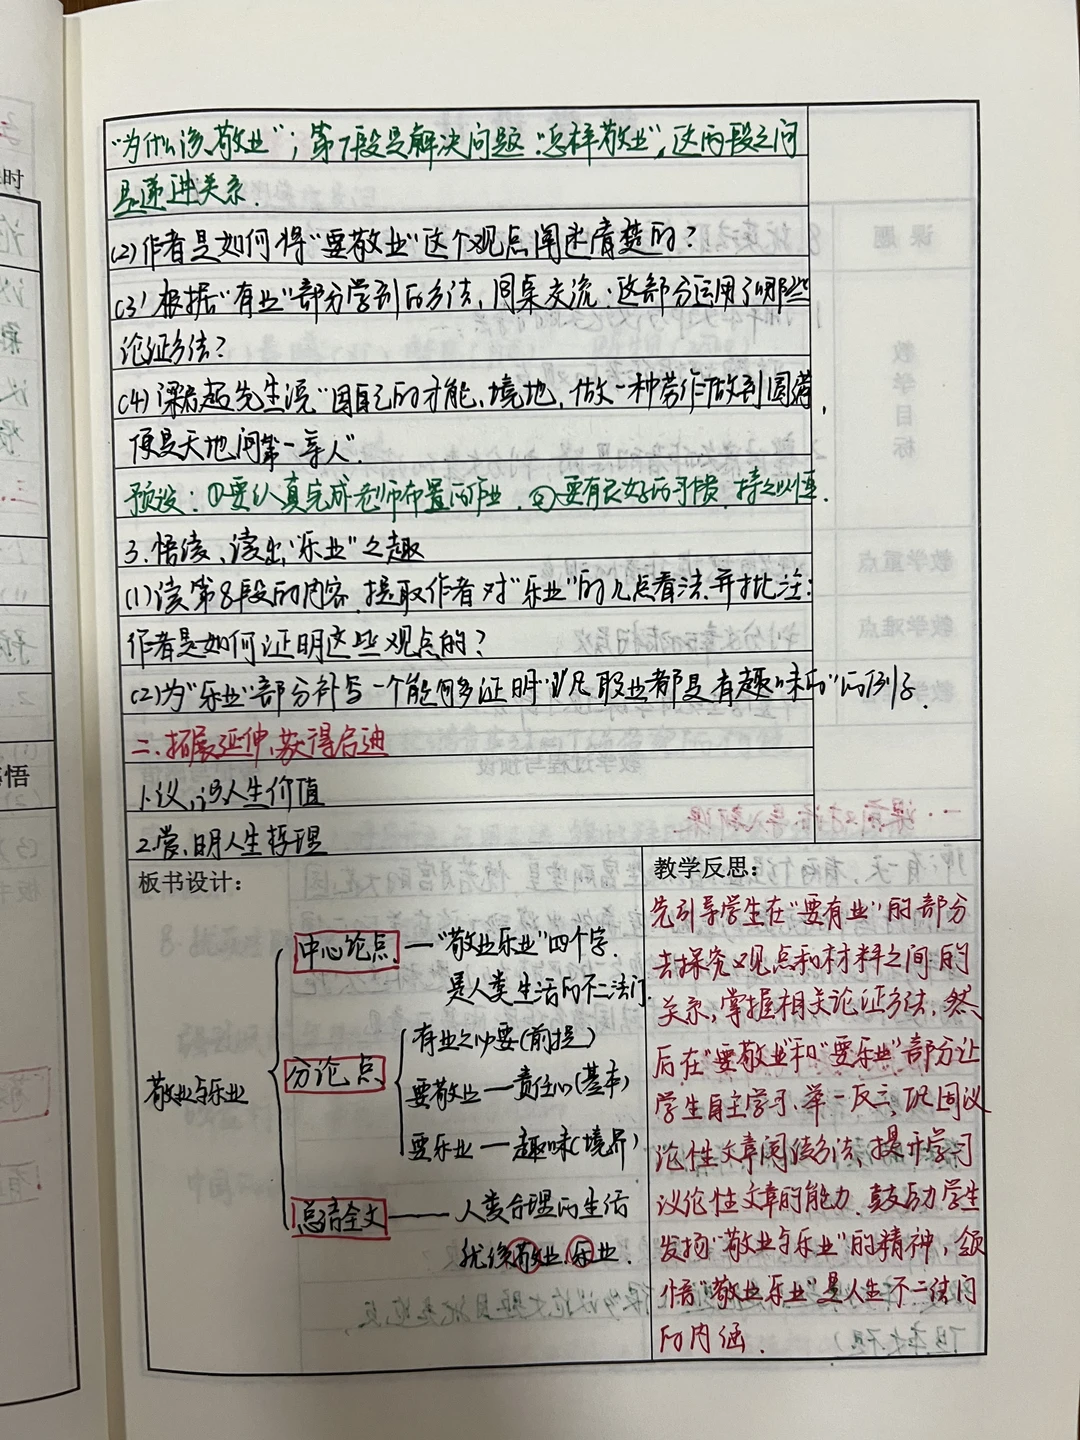 "为什么该敬业"；第7段是解决问题"怎样敬业"，这两段之间
是递进关系．
(2)作者是如何将"要敬业"这个观点阐述清楚的？
(3)根据"有业"部分学到的方法，同桌交流：这部分运用了哪些
论证方法？
(4)梁启超先生说"因自己的才能、境地，做一种劳作做到圆满，
便是天地间第一等人"．
预设：①要认真完成老师布置的作业．②要有良好的习惯，持之以恒．
3.悟读，读出"乐业"之趣
(1)读第8段的内容，提取作者对"乐业"的几点看法并批注：
作者是如何证明这些观点的？
(2)为"乐业"部分补写一个能够多证明"凡职业都是有趣味的"的例子．
二、拓展延伸，获得启迪
1.议，识人生价值
2.赏，明人生哲理
板书设计：
敬业与乐业
中心论点—"敬业乐业"四个字．
是人类生活的不二法门．
分论点
有业之必要(前提)
要敬业—责任心(基本)
要乐业—趣味(境界)
总结全文——人类合理的生活
犹须敬业、乐业．
教学反思：
先引导学生在"要有业"的部分
去探究观点和材料之间的
关系，掌握相关论证方法，然
后在"要敬业"和"要乐业"部分让
学生自主学习，举一反三，巩固议
论性文章阅读方法，提升学习
议论性文章的能力．鼓励学生
发扬"敬业与乐业"的精神，领
悟"敬业乐业"是人生不二法门
的内涵．
课题
教学目标
教学重点
教学难点
时
悟